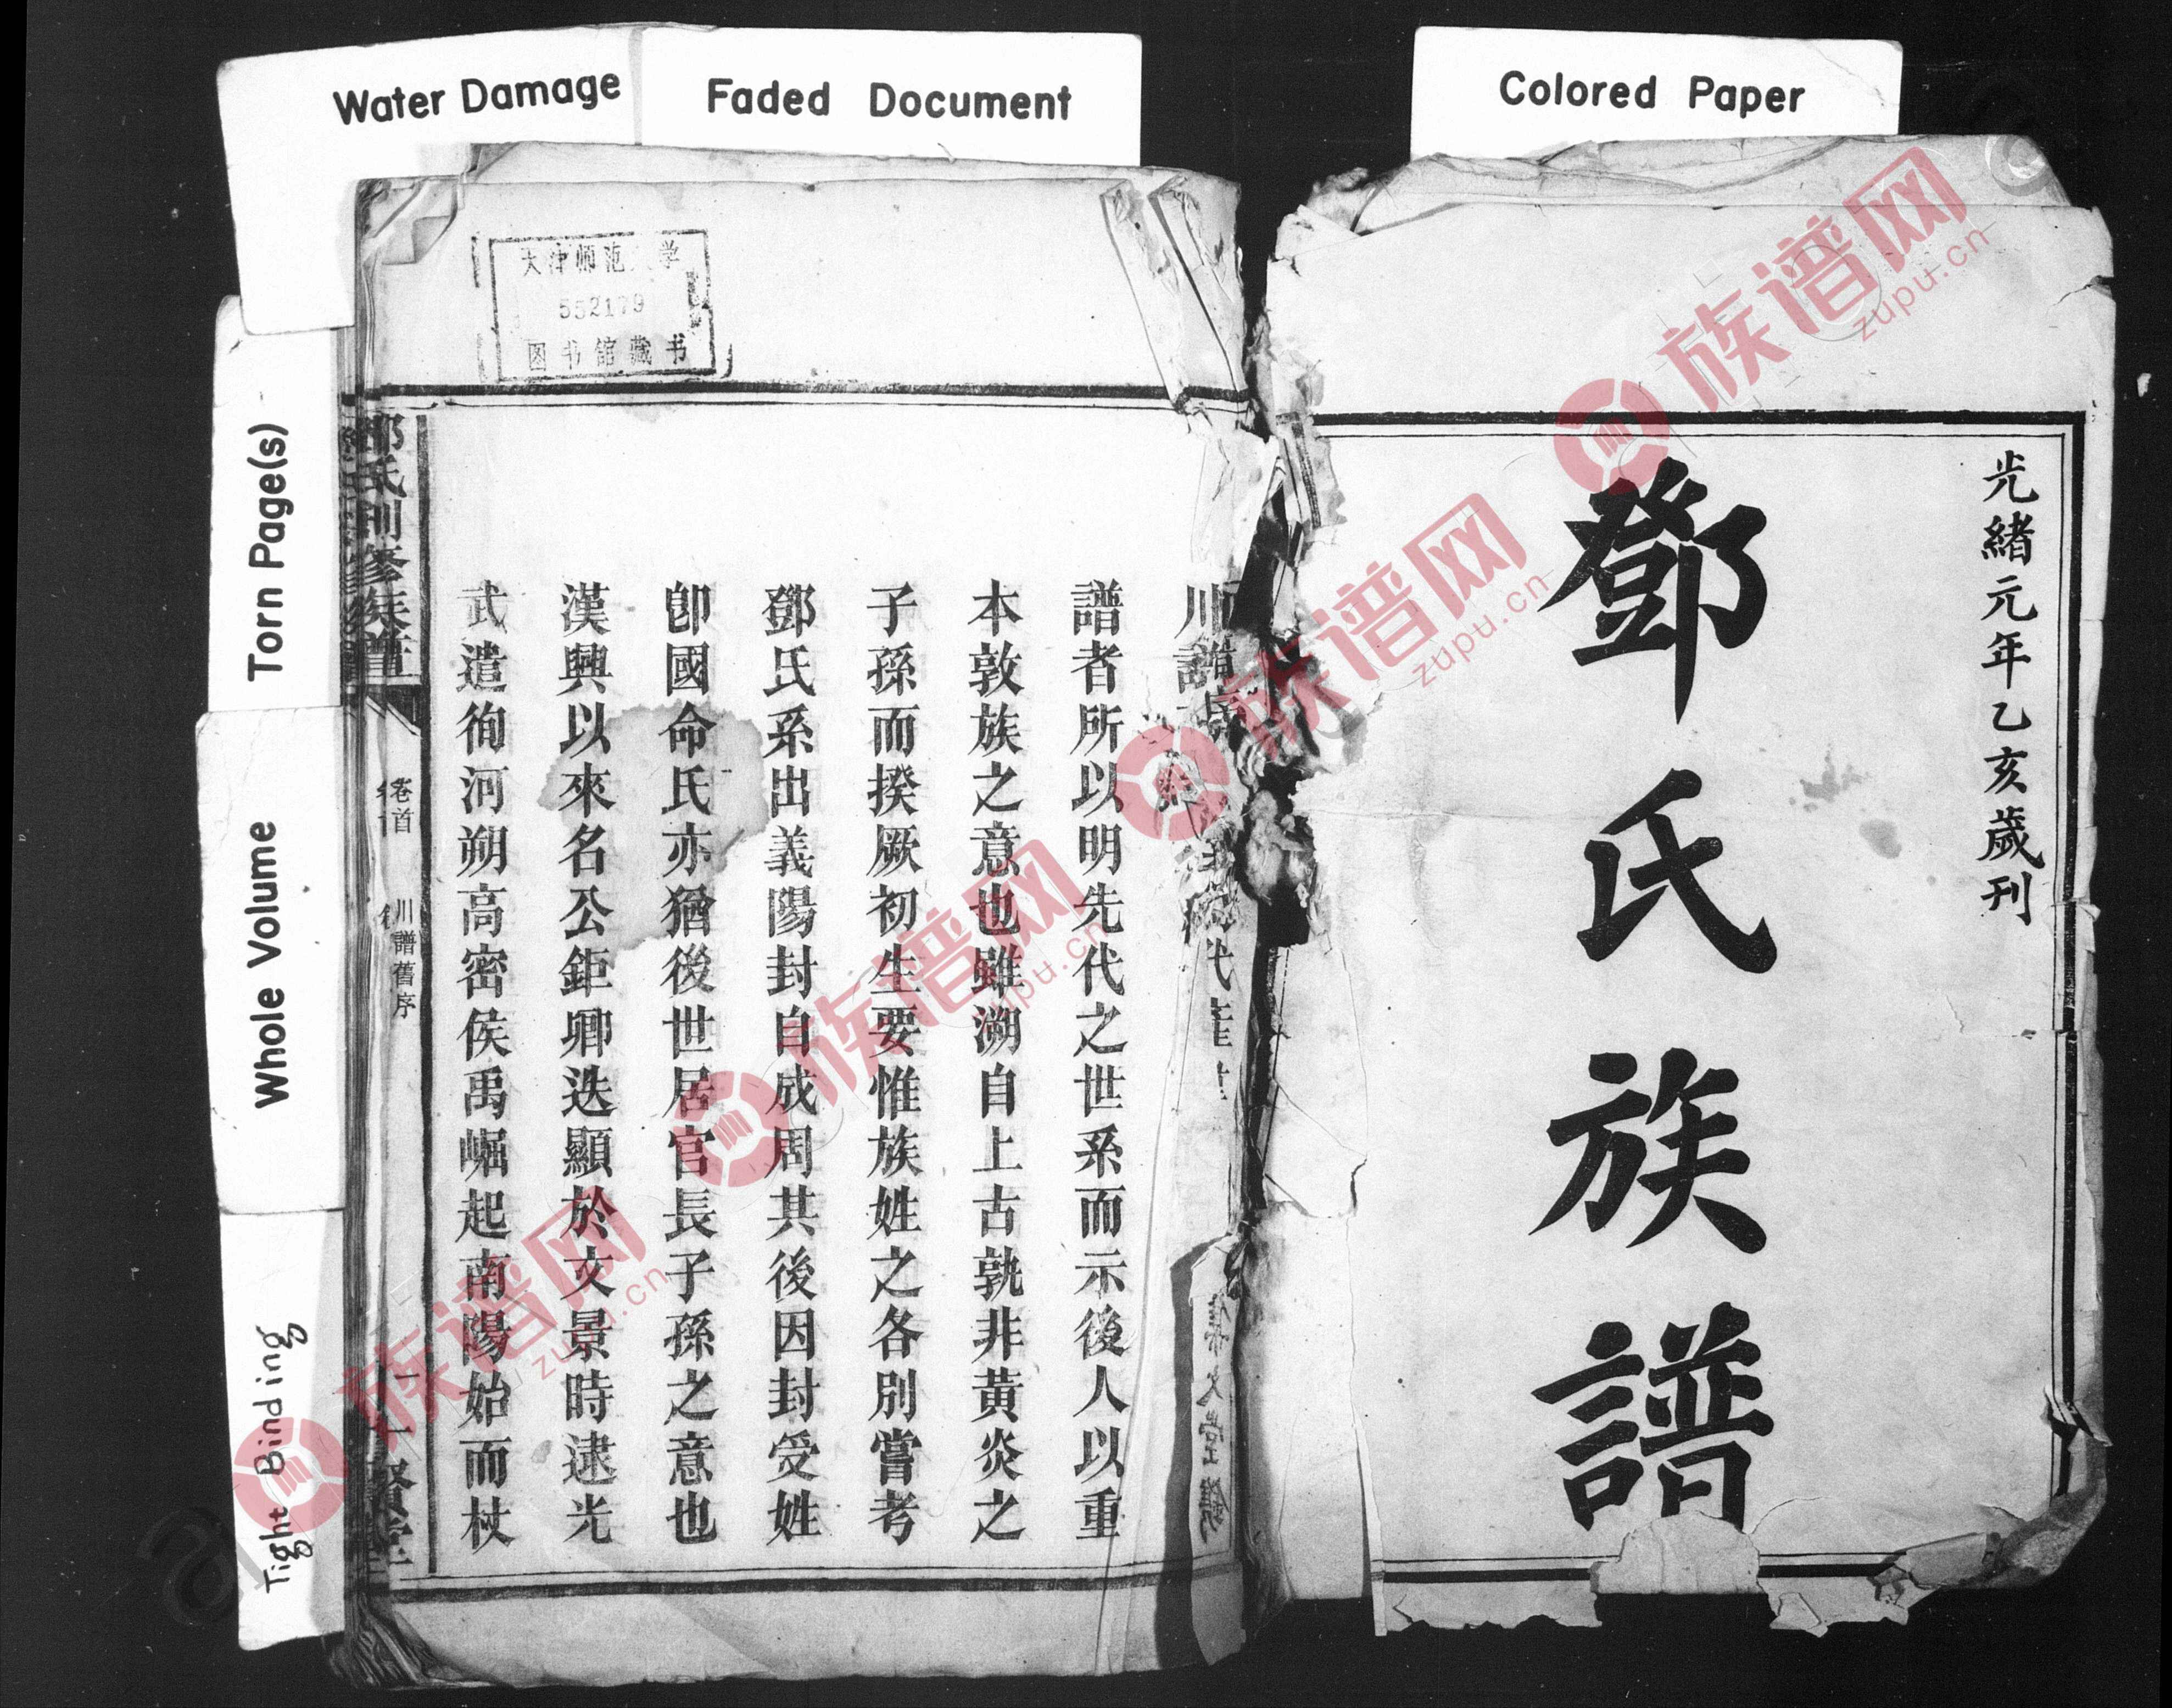 Water Damage
Faded Document
Colored Paper
Torn Page(s)
Whole Volume
Tight Binding
光緒元年乙亥歲刊
鄧氏族譜
天津师范大学
552179
图书馆藏书
川譜
譜者所以明先代之世系而示後人以重
本敦族之意也雖溯自上古孰非黃炎之
子孫而揆厥初生要惟族姓之各別嘗考
鄧氏系出義陽封自成周其後因封受姓
卽國命氏亦猶後世居官長子孫之意也
漢興以來名公鉅卿迭顯於文景時逮光
武遣徇河朔高密侯禹崛起南陽始而杖
氏刊修族譜
卷首
川譜舊序
族谱网
zupu.cn
族谱网
zupu.cn
族谱网
zupu.cn
族谱网
zupu.cn